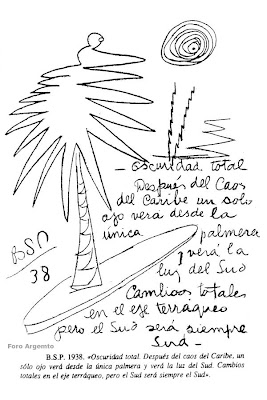 – oscuridad total
Después del Caos
del Caribe un solo
ojo verá desde la
única palmera
y verá la
luz del Sud
Cambios totales
en el eje terráqueo
pero el Sud será siempre
Sud –
BSP
38
Foro Argemto
B.S.P. 1938. «Oscuridad total. Después del caos del Caribe, un
sólo ojo verá desde la única palmera y verá la luz del Sud. Cambios
totales en el eje terráqueo, pero el Sud será siempre el Sud».